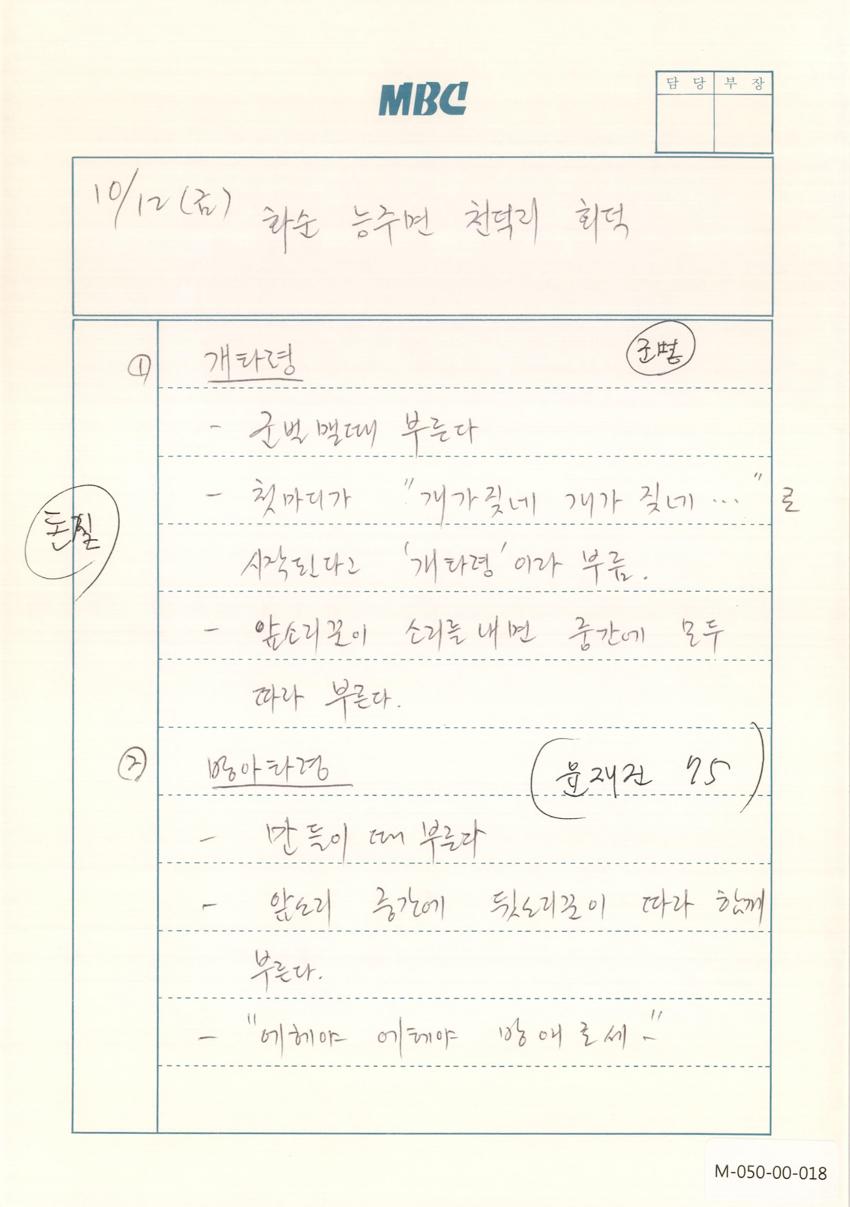 MBC
담 당 부 장
10/12(금) 화순 능주면 천덕리 회덕
① 개타령
군벌
- 군벅 맬때 부른다
- 첫마디가 "개가짖네 개가 짖네 …" 로
시작된다고 '개타령'이라 부름.
- 앞소리꾼이 소리를 내면 중간에 모두
따라 부른다.
② 방아타령
(문재진 75)
- 만들이 때 부른다
- 앞소리 중간에 뒷소리꾼이 따라 함께
부른다.
- "에헤야 에헤야 방애로세-"
M-050-00-018